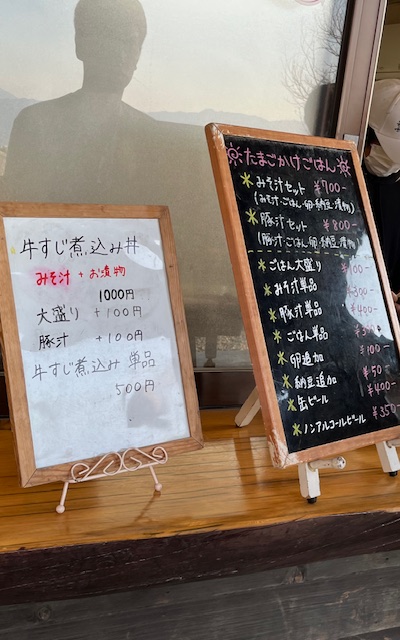 牛すじ煮込み丼
みそ汁 + お漬物
1000円
大盛り +100円
豚汁 +100円
牛すじ煮込み 単品
500円
たまごかけごはん
みそ汁セット ¥700-
(みそ汁・ごはん・卵・納豆・漬物)
豚汁セット ¥800-
(豚汁・ごはん・卵・納豆・漬物)
ごはん大盛り ¥100-
みそ汁単品 ¥300-
豚汁単品 ¥400-
ごはん単品
卵追加 ¥100-
納豆追加 ¥50-
缶ビール ¥400-
ノンアルコールビール ¥350-